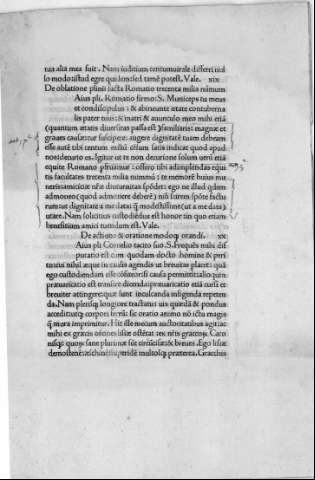 tua alia mea fuit. Nam iuditium centumuirale differri nul
lo modo istud egre quidem sed tamē potest. Vale. XIX
De oblatione plinii facta Romatio trecenta milia nūmum
Aius pli. Romatio firmo: S. Municeps tu meus
et condiscipulus: & ab ineunte ętate contuberna
lis pater tuus: & matri & auunculo meo mihi etiā
(quantum ętatis diuersitas passa est) familiaris: magnę et
graues causę cur suscipere: augere dignitatē tuam debeam
esse autē tibi centum miliū cēsum satis indicat quod apud
nos decurio es. Igitur ut te non decurione solum uerū etiā
equite Romano pfruamur: offero tibi ad implendas equi
tis facultates trecenta milia nūmū: te memorē huius mu
neris amicitię nrę diuturnitas spōdet: ego ne illud qdem
admoneo (quod admonere deberē) nisi scirem spōte factu
rum ut dignitate a me data: q̄ modestissime (ut a me data)
utare. Nam solicitius custodiēdus est honor: in quo etiam
benefitium amici tuendum est. Vale.
De actione & oratione modoq; orandi. XX
Aius pli Cornelio tacito suo. S. Frequēs mihi dis
putatio est cum quodam docto homine & peri
to: cui nihil ęque in causis agendis ut breuitas placet: quā
ego custodiendam esse cōfiteor: si causa permittat: alioquin
pręuaricatio est transire dicenda: pręuaricatio etiā cursī et
breuiter attingere: quę sunt inculcanda infigenda repeten
da. Nam plerisq; longiore tractatu: uis quędā & pondus
accedit: utq; corpori ferrū: sic oratio animo nō ictu magis
q̄ mora imprimitur. Hic ille mecum auctoritatibus agit: ac
mihi ex gręcis oriones lisię ostētat: ex nrīs gracco₂ Cato
nisq; quo₂ sane plurimę sūt circūcisę & breues. Ego lisię
demostenē: ęschinē: hiperidē multosq; pręterea. Gracchis